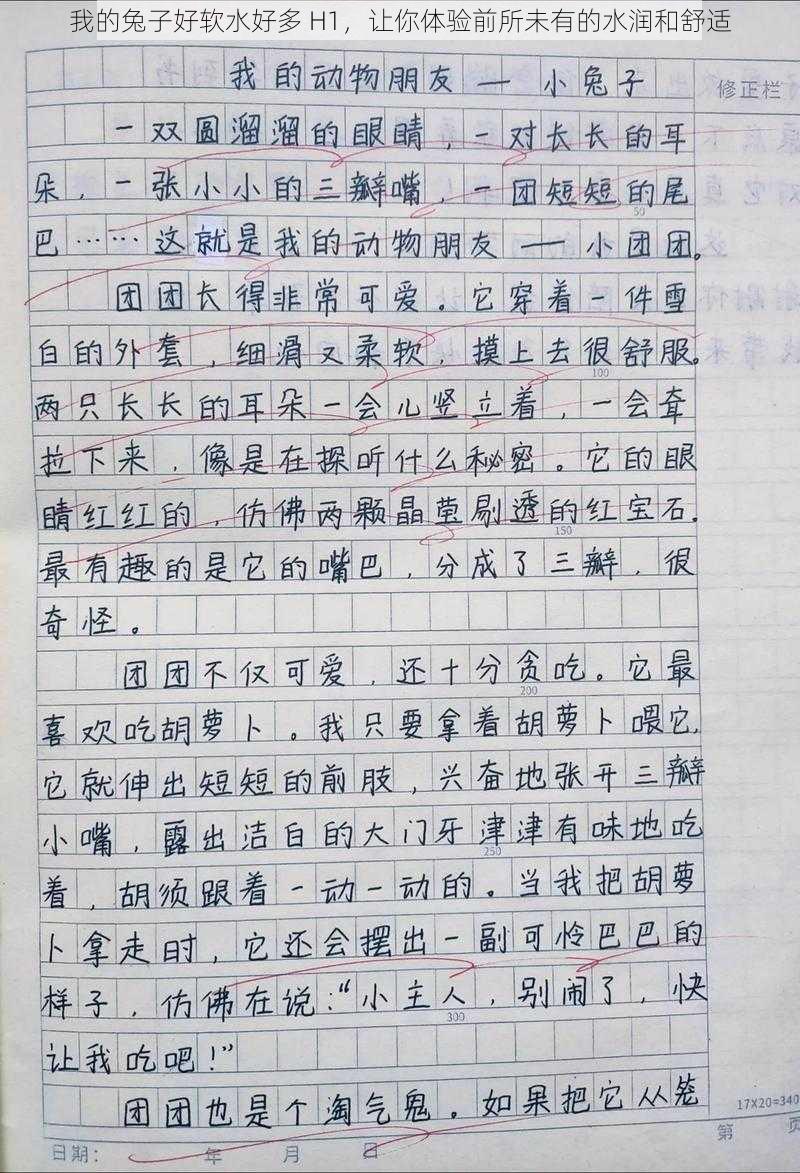 我的兔子好软水好多 H1，让你体验前所未有的水润和舒适
我的动物朋友——小兔子
修正栏
一双圆溜溜的眼睛，一对长长的耳
朵，一张小小的三瓣嘴，一团短短的尾
50
巴……这就是我的动物朋友——小团团。
团团长得非常可爱。它穿着一件雪
白的外套，细滑又柔软，摸上去很舒服。
100
两只长长的耳朵一会儿竖立着，一会耷
拉下来，像是在探听什么秘密。它的眼
睛红红的，仿佛两颗晶莹剔透的红宝石。
150
最有趣的是它的嘴巴，分成了三瓣，很
奇怪。
团团不仅可爱，还十分贪吃。它最
200
喜欢吃胡萝卜。我只要拿着胡萝卜喂它，
它就伸出短短的前肢，兴奋地张开三瓣
小嘴，露出洁白的大门牙津津有味地吃
250
着，胡须跟着一动一动的。当我把胡萝
卜拿走时，它还会摆出一副可怜巴巴的
样子，仿佛在说：“小主人，别闹了，快
300
让我吃吧！”
团团也是个淘气鬼。如果把它从笼
17X20=340
日期： 年 月 日
第 页